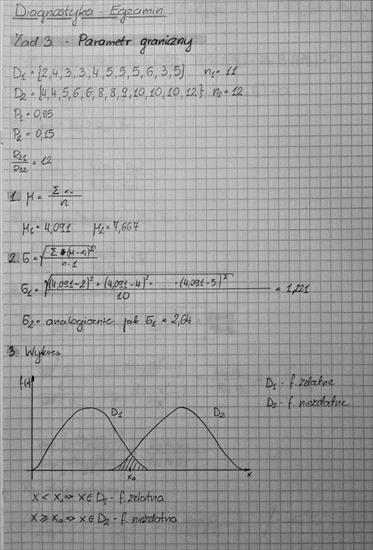 Diagnostyka - Egzamin
Zad 3 - Parametr graniczny
D₁ = {2,4,3,3,4,5,5,5,6,3,5} n₁ = 11
D₂ = {4,4,5,6,6,8,8,9,10,10,10,12} n₂ = 12
P₁ = 0,85
P₂ = 0,15
= 12
1. μ = Σxᵢ / n
μ₁ = 4,091 μ₂ = 7,667
2. б = √(Σ(μ-xᵢ)² / n-1)
б₁ = √((4,091-2)² + (4,091-4)² + ... (4,091-5)²) / 10 = 1,221
б₂ = analogicznie jak б₁ = 2,64
3. Wykres
f(x)
D₁ D₂
D₁ - f. zdatne
D₂ - f. niezdatne
x₀ x
x < x₀ => x ∈ D₁ - f. zdatna
x ≥ x₀ => x ∈ D₂ - f. niezdatna